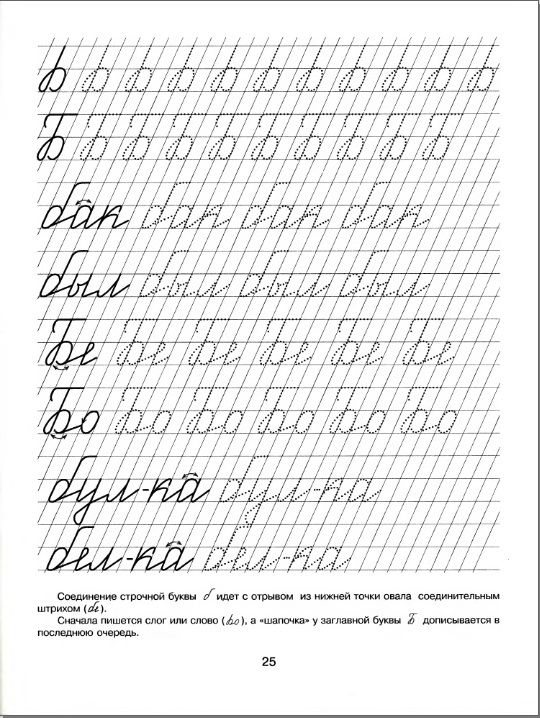 Ь Ь Ь Ь Ь Ь Ь Ь Ь Ь Ь
Б Б Б Б Б Б Б Б Б Б
бак бак бак бак
был был был был
Бе Бе Бе Бе Бе Бе
Бо Бо Бо Бо Бо Бо
бул-ка бул-ка
бел-ка бел-ка
Соединение строчной буквы б идет с отрывом из нижней точки овала соединительным
штрихом (бе).
Сначала пишется слог или слово (Ьо), а «шапочка» у заглавной буквы Б дописывается в
последнюю очередь.
25